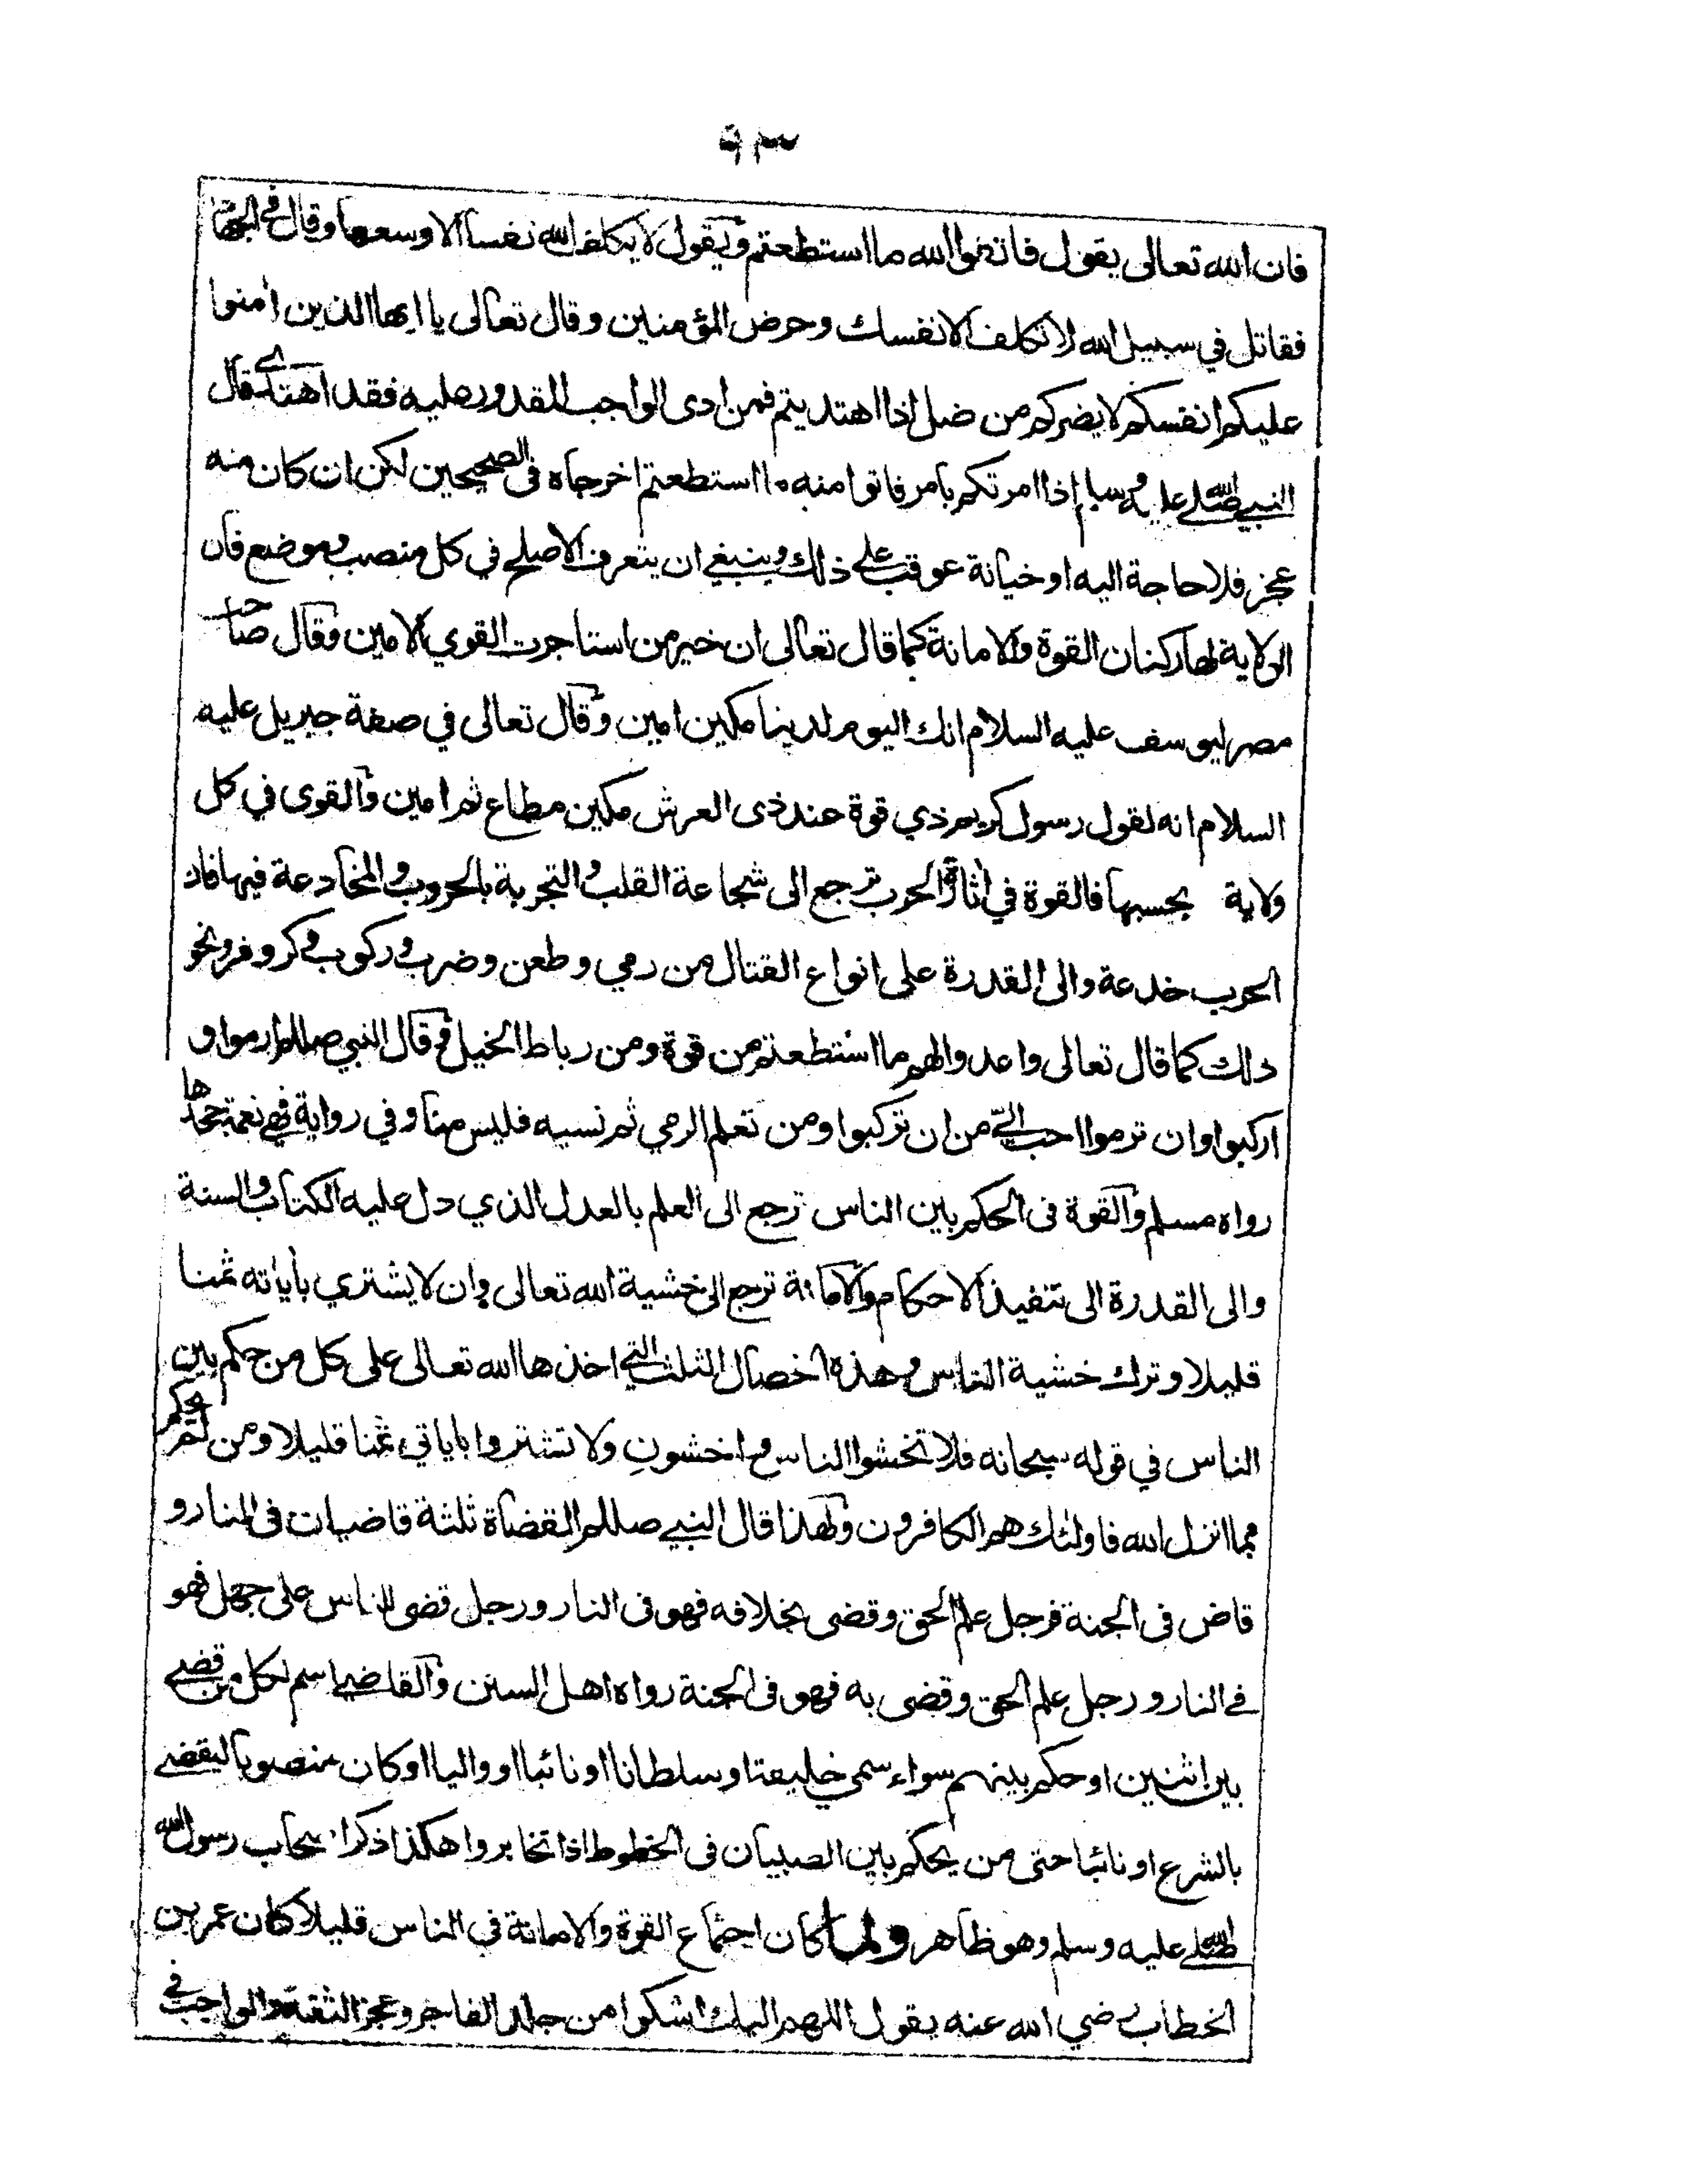 ٩٣
فان الله تعالى يقول فاتقوا الله ما استطعتم ويقول لا يكلف الله نفسا الا وسعها وقال في الجهاد
فقاتل في سبيل الله لا تكلف الا نفسك وحرض المؤمنين وقال تعالى يا ايها الذين امنوا
عليكم انفسكم لا يضركم من ضل اذا اهتديتم فمن ادى الواجب المقدور عليه فقد اهتدى قال
النبي صلى الله عليه وسلم إذا امرتكم بامر فاتوا منه ما استطعتم اخرجاه في الصحيحين لكن ان كان منه
عجز فلا حاجة اليه او خيانة عوقب على ذلك وينبغي ان يتعرف الاصلح في كل منصب وموضع فان
الولاية لها ركنان القوة والامانة كما قال تعالى ان خير من استاجرت القوي الامين وقال صاحب
مصر ليوسف عليه السلام انك اليوم لدينا مكين امين وقال تعالى في صفة جبريل عليه
السلام انه لقول رسول كريم ذي قوة عند ذى العرش مكين مطاع ثم امين والقوى في كل
ولاية بحسبها فالقوة في اثارة الحرب ترجع الى شجاعة القلب والتجربة بالحروب والمخادعة فيها فان
الحرب خدعة والى القدرة على انواع القتال من رمي وطعن وضرب وركوب وكر وفر ونحو
ذلك كما قال تعالى واعدوا لهم ما استطعتم من قوة ومن رباط الخيل وقال النبي صللم ارموا و
اركبوا وان ترموا احب الي من ان تركبوا ومن تعلم الرمي ثم نسيه فليس منا وفي رواية فهي نعمة جحدها
رواه مسلم والقوة في الحكم بين الناس ترجع الى العلم بالعدل الذي دل عليه الكتاب والسنة
والى القدرة الى تنفيذ الاحكام والامانة ترجع الى خشية الله تعالى وان لا يشتري بأياته ثمنا
قليلا وترك خشية الناس وهذه الخصال الثلث التي اخذها الله تعالى على كل من حكم بين
الناس في قوله سبحانه فلا تخشوا الناس واخشونِ ولا تشتروا باياتي ثمنا قليلا ومن لم يحكم
بما انزل الله فاولئك هم الكافرون ولهذا قال النبي صللم القضاة ثلثة قاضيان في النار و
قاض في الجنة فرجل علم الحق وقضى بخلافه فهو في النار ورجل قضى للناس على جهل فهو
في النار ورجل علم الحق وقضى به فهو في الجنة رواه اهل السنن والقاضي اسم لكل من قضى
بين اثنين او حكم بينهم سواء سمي خليفتا او سلطانا او نائبا او واليا او كان منصوبا ليقضي
بالشرع او نائبا حتى من يحكم بين الصبيان في الخطوط اذا تخايروا هكذا ذكر اصحاب رسول الله
صلى الله عليه وسلم وهو ظاهر ولما كان اجتماع القوة والامانة في الناس قليلا كان عمر بن
الخطاب رضي الله عنه يقول اللهم اليك اشكوا من جلد الفاجر وعجز الثقة والواجب في